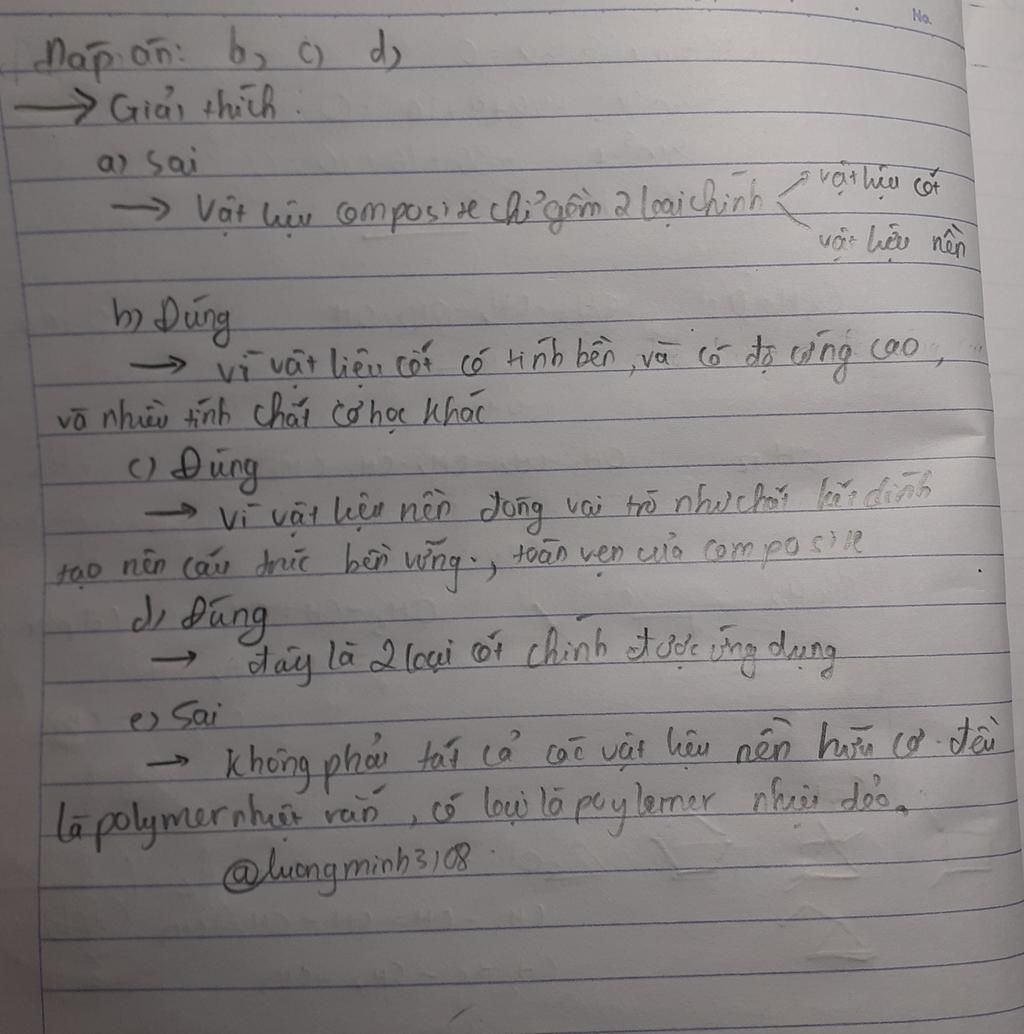 No.
Đáp án: b, c) d,
→ Giải thích:
a) Sai
→ Vật liệu composite chỉ gồm 2 loại chính vật liệu cốt
vật liệu nền
b) Đúng
→ vì vật liệu cốt có tính bền, và có độ cứng cao,
và nhiều tính chất cơ học khác
c) Đúng
→ vì vật liệu nền đóng vai trò như chất kết dính
tạo nên cấu trúc bền vững., toàn vẹn của composite
d) Đúng
→ đây là 2 loại cốt chính được ứng dụng
e) Sai
→ không phải tất cả các vật liệu nền hữu cơ đều
là polymer nhiệt rắn, có loại là poylemer nhiệt dẻo.
@luongminh3108